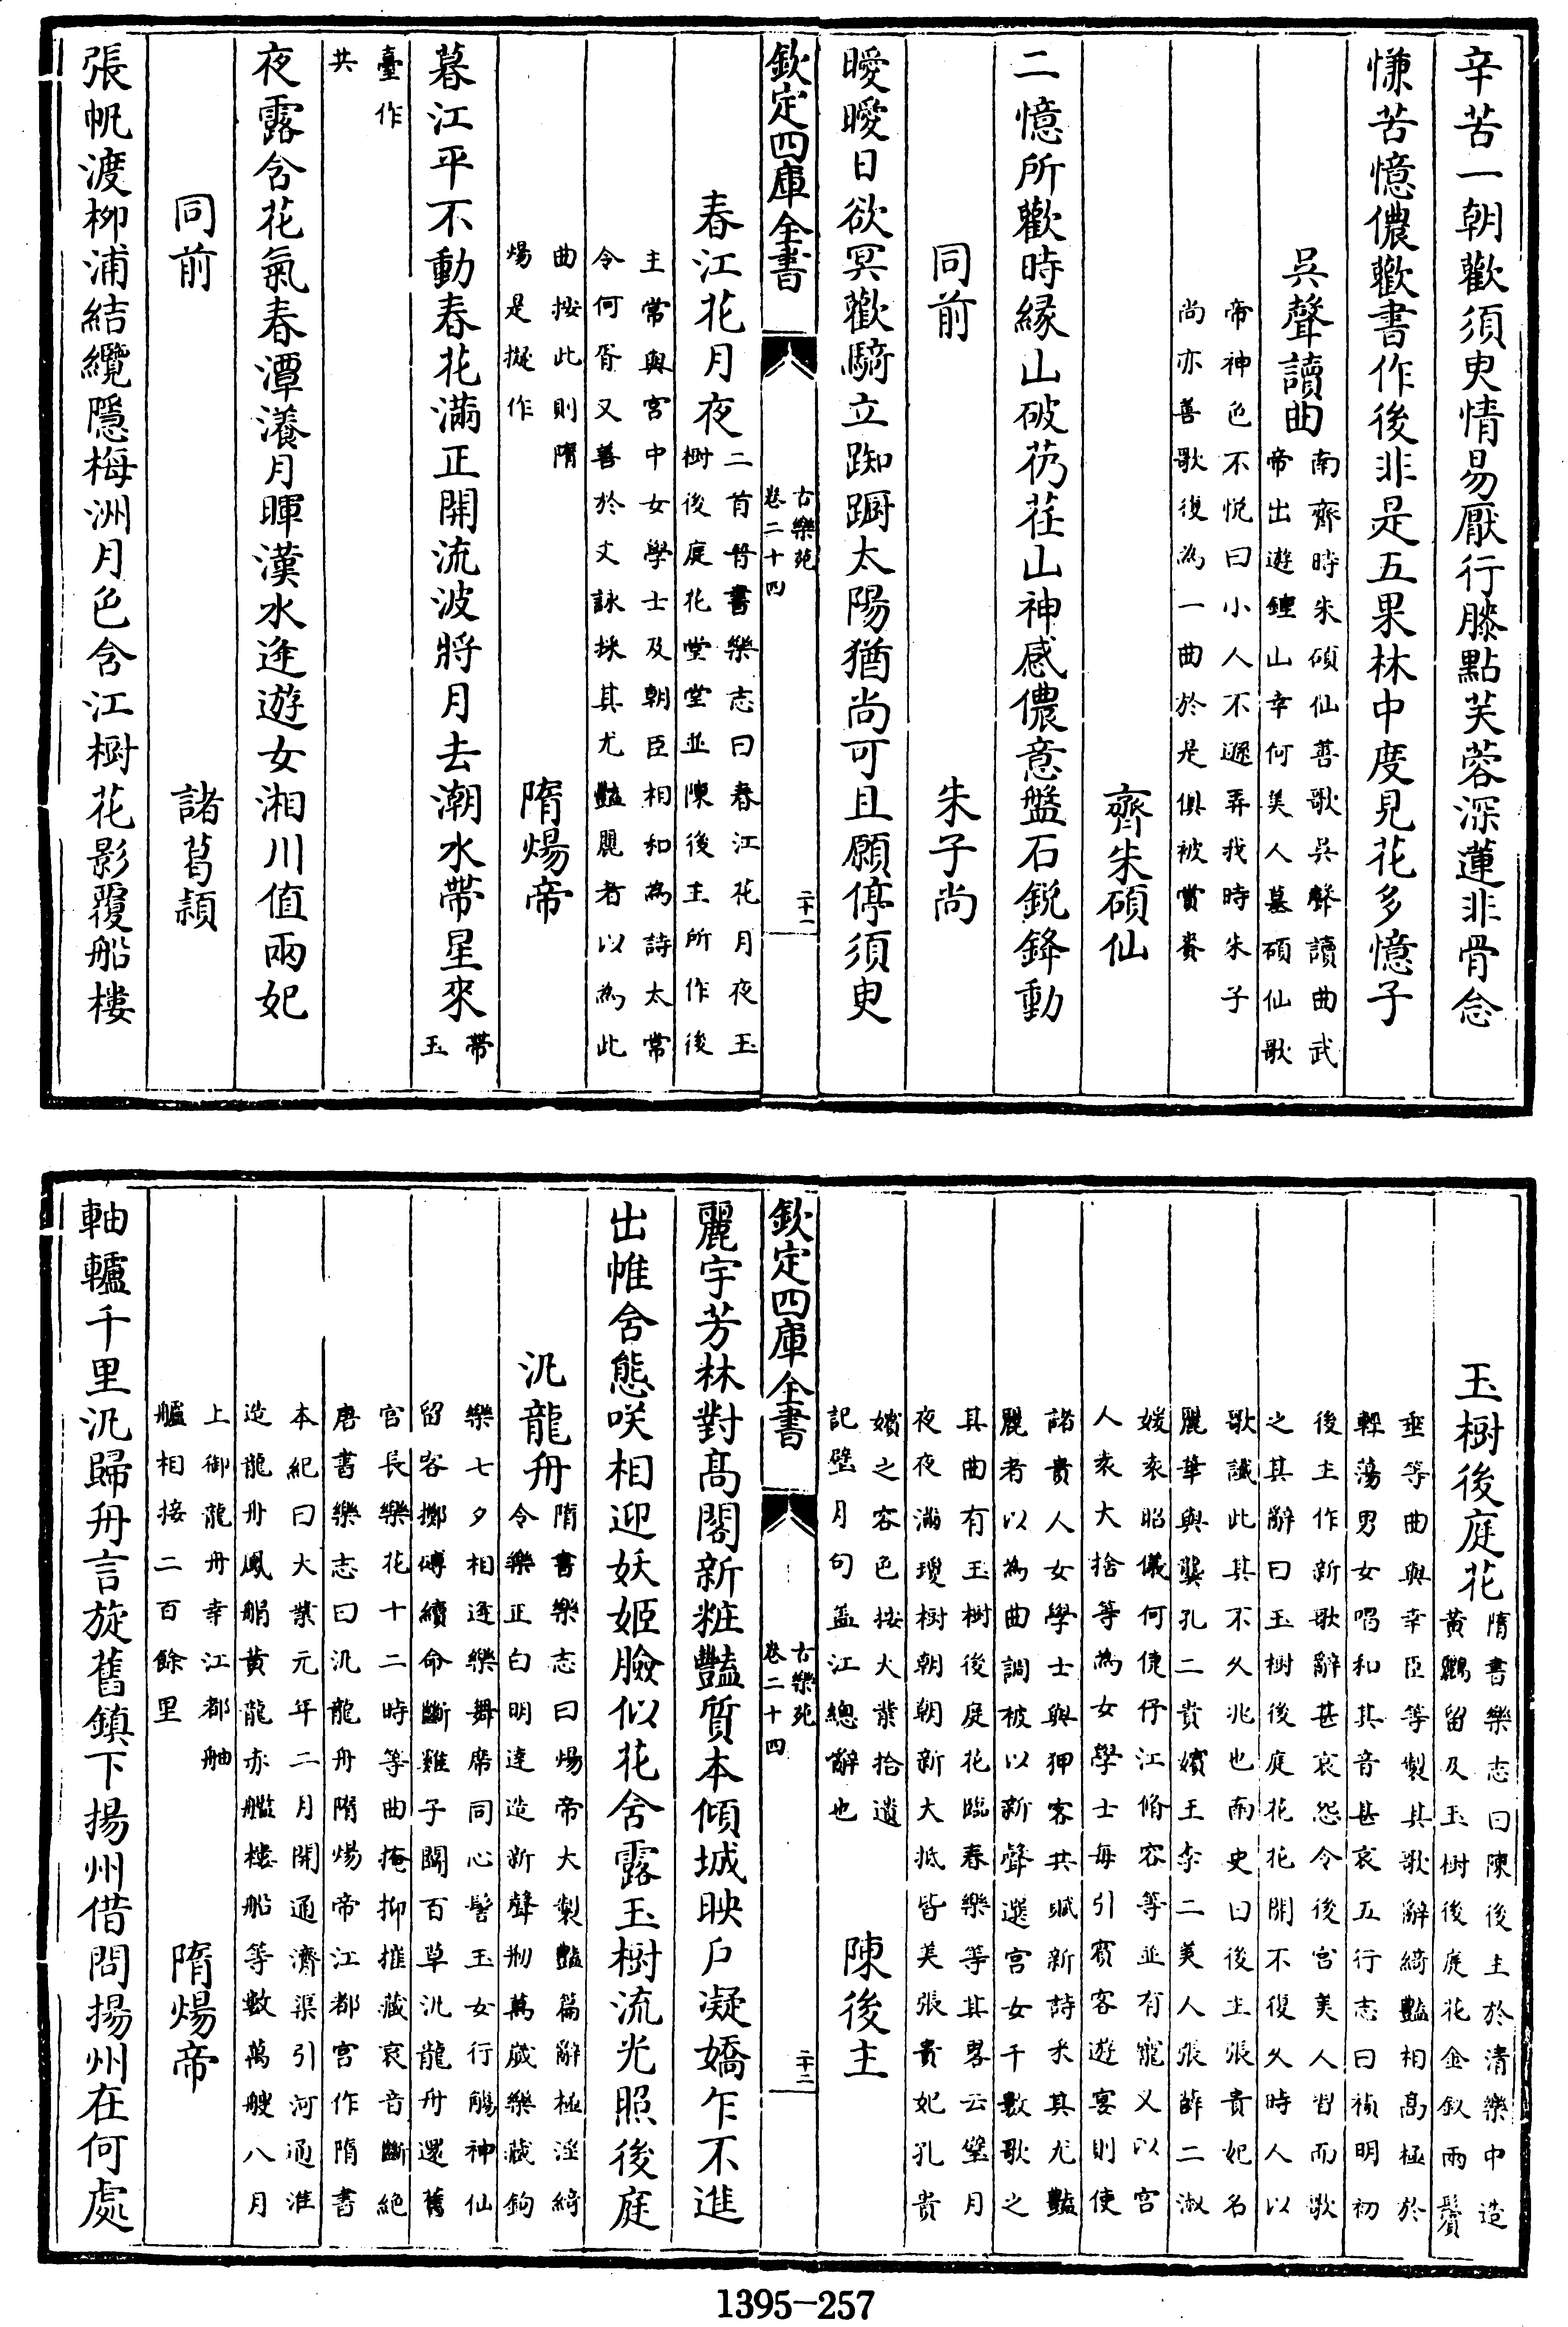 辛苦一朝歡須臾情易厭行膝點芙蓉深蓮非骨念
慊苦憶儂歡書作後非是五果林中度見花多憶子
吳聲讀曲
南齊時朱碩仙善歌吳聲讀曲武
帝出遊鍾山幸何美人墓碩仙歌
帝神色不悦曰小人不遜弄我時朱子
尚亦善歌復為一曲於是俱被賞賚
齊朱碩仙
二憶所歡時緣山破芿荏山神感儂意盤石銳鋒動
同前 朱子尚
曖曖日欲冥歡騎立踟蹰太陽猶尚可且願停須臾
欽定四庫全書
古樂苑
卷二十四
二十一
春江花月夜
二首晉書樂志曰春江花月夜玉
樹後庭花堂堂並陳後主所作後
主常與宮中女學士及朝臣相和為詩太常
令何胥又善於文詠採其尤豔麗者以為此
曲按此則隋
煬是擬作
隋煬帝
暮江平不動春花滿正開流波將月去潮水帶星來
帶
玉
臺作
共
夜露含花氣春潭瀁月暉漢水逢遊女湘川值兩妃
同前 諸葛穎
張帆渡柳浦結纜隱梅洲月色含江樹花影覆船樓
玉樹後庭花
隋書樂志曰陳後主於清樂中造
黃鸝留及玉樹後庭花金釵兩鬢
垂等曲與幸臣等製其歌辭綺豔相高極於
輕蕩男女唱和其音甚哀五行志曰禎明初
後主作新歌辭甚哀怨令後宮美人習而歌
之其辭曰玉樹後庭花花開不復久時人以
歌讖此其不久兆也南史曰後主張貴妃名
麗華與龔孔二貴嬪王李二美人張薛二淑
媛袁昭儀何倢伃江脩容等並有寵又以宮
人袁大捨等為女學士每引賓客遊宴則使
諸貴人女學士與狎客共賦新詩采其尤豔
麗者以為曲調被以新聲選宮女千數歌之
其曲有玉樹後庭花臨春樂等其畧云璧月
夜夜滿瓊樹朝朝新大抵皆美張貴妃孔貴
嬪之容色按大業拾遺
記璧月句盖江總辭也
陳後主
欽定四庫全書
古樂苑
卷二十四
二十二
麗宇芳林對髙閣新粧豔質本傾城映戶凝嬌乍不進
出帷含態咲相迎妖姬臉似花含露玉樹流光照後庭
汎龍舟
隋書樂志曰煬帝大製豔篇辭極淫綺
令樂正白明達造新聲剏萬歲樂藏鉤
樂七夕相逢樂舞席同心髻玉女行觴神仙
留客擲磚續命斷雞子鬭百草汎龍舟還舊
宮長樂花十二時等曲掩抑摧藏哀音斷絕
唐書樂志曰汎龍舟隋煬帝江都宮作隋書
本紀曰大業元年二月開通濟渠引河通淮
造龍舟鳳䑽黃龍赤艦樓船等數萬艘八月
上御龍舟幸江都舳
艫相接二百餘里
隋煬帝
軸轤千里汎歸舟言旋舊鎮下揚州借問揚州在何處
1395-257